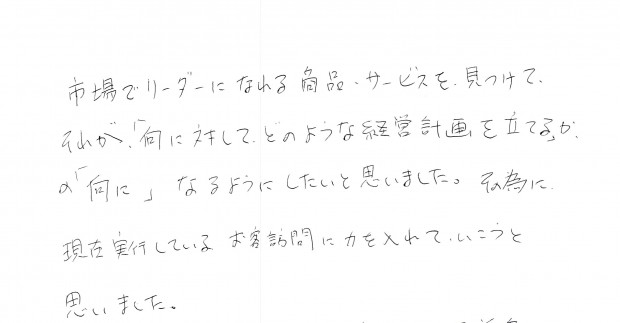 市場でリーダーになれる商品・サービスを、見つけて、
それが、「何に対して、どのような経営計画を立てる」か、
の「何に」なるようにしたいと思いました。その為に、
現在実行しているお客訪問に力を入れて、いこうと
思いました。